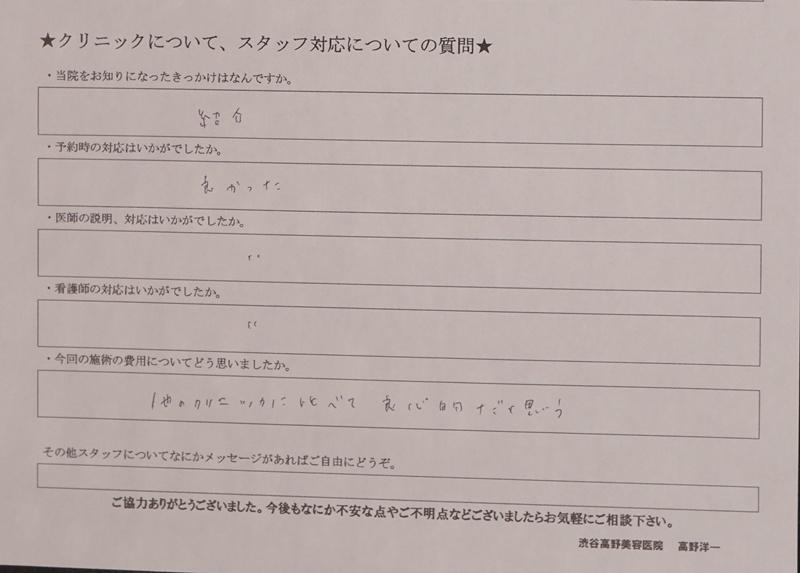 ★クリニックについて、スタッフ対応についての質問★
・当院をお知りになったきっかけはなんですか。
紹介
・予約時の対応はいかがでしたか。
良かった
・医師の説明、対応はいかがでしたか。
〃
・看護師の対応はいかがでしたか。
〃
・今回の施術の費用についてどう思いましたか。
他のクリニックに比べて 良心的だと思う
その他スタッフについてなにかメッセージがあればご自由にどうぞ。
ご協力ありがとうございました。今後もなにか不安な点やご不明点などございましたらお気軽にご相談下さい。
渋谷高野美容医院 高野洋一